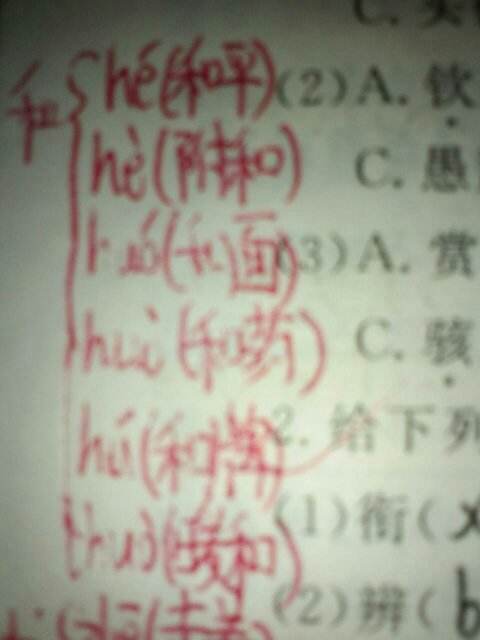 C.
和 hé(和平)
(2)A. 钦
hè(附和)
C. 愚
huó(和面)
(3)A. 赏
huò(和药)
C. 骇
hú(和牌)
2. 给下列
huo(暖和)
(1)衔(x
(2)辨(b